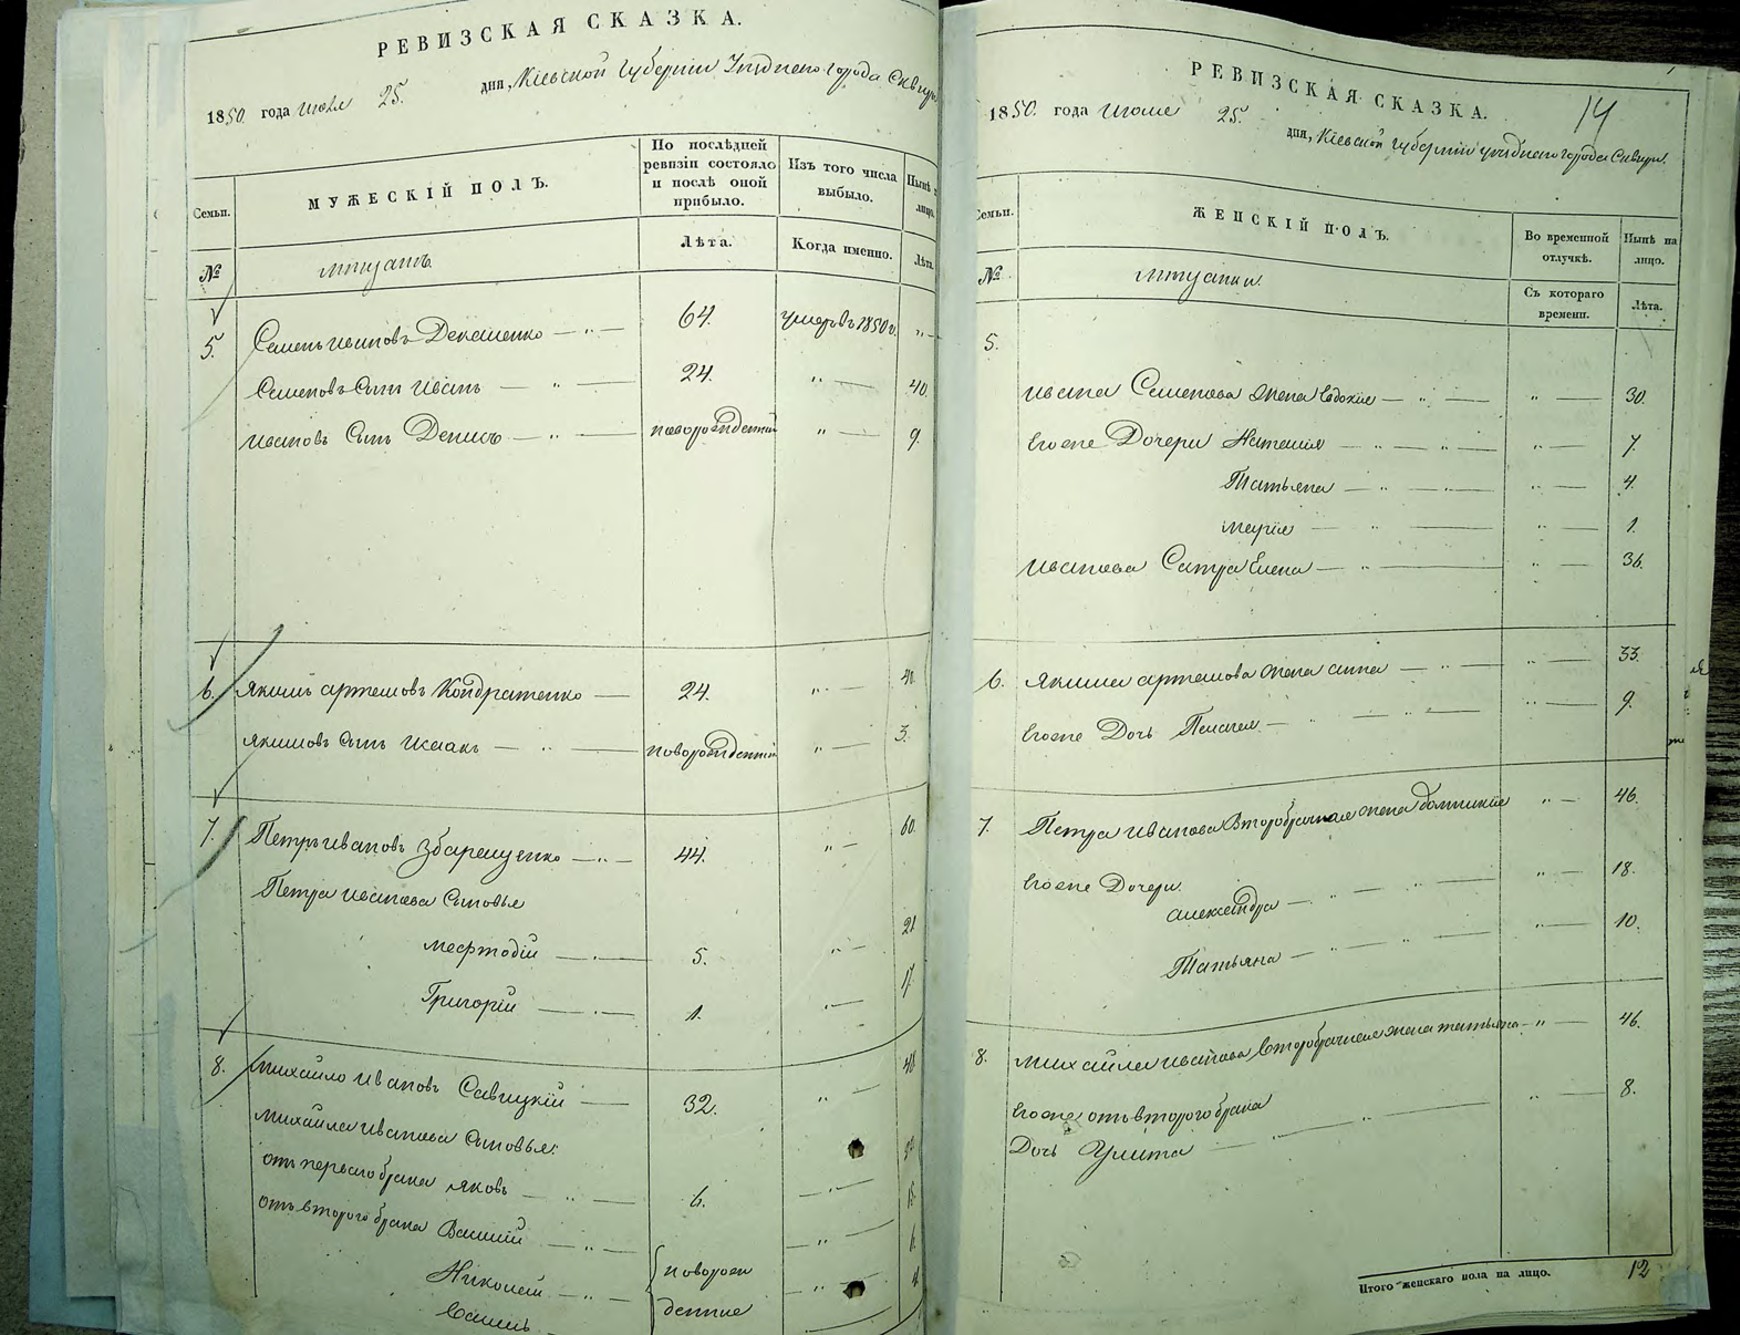 РЕВИЗСКАЯ СКАЗКА.
1850 года июля 25. дня, Кіевской губерніи Уѣзднаго города Сквиры
Семьи.
МУЖЕСКІЙ ПОЛЪ.
По послѣдней ревизіи состояло и послѣ оной прибыло.
Изъ того числа выбыло.
Нынѣ
лицо.
№
Лѣта.
Когда именно.
Лѣта.
5. Семенъ Ивановъ Денешенко — " — 64. умеръ въ 1850 г. "
Семеновъ Сынъ Иванъ — " — 24. " — 40.
Ивановъ Сынъ Денисъ — " — новорожденный " — 9.
6. Якимъ Артемовъ Кондратенко — 24. " — 40.
Якимовъ Сынъ Исаакъ — " — новорожденный " — 3.
7. Петръ Ивановъ Збарещенко — " — 44. " — 60.
Петра Иванова Сыновья
Мефтодій — 5. " — 21
Григорій — 1. " — 17.
8. Михайло Ивановъ Савицкій — 32. " — 48
Михайла Иванова Сыновья:
отъ перваго брака Яковъ — " — 6.
отъ втораго брака Василій — " —
Николай — " — новорож
денные
РЕВИЗСКАЯ СКАЗКА.
14
1850. года Июля 25. дня, Кіевской губерніи уѣзднаго города Сквиры.
Семьи.
ЖЕНСКІЙ ПОЛЪ.
Во временной отлучкѣ.
Нынѣ на лицо.
№
Съ котораго времени.
Лѣта.
5.
Ивана Семенова жена Евдокия — " — " — 30.
Его же Дочери Наталия — " — " — " — 7.
Татьяна — " — " — 4.
Марія — " — " — 1.
Иванова Сестра Елена — " — " — 36.
6. Якима Артемова жена Анна — " — " — 33.
Его же Дочь Пелагея — " — " — " — 9.
7. Петра Иванова Второбрачная жена Домникия " — 46.
Его же Дочери.
Александра — " — " — " — 18.
Татьяна — " — " — " — 10.
8. Михайла Иванова Второбрачная жена Татьяна — " — 46.
Его же отъ второго брака
Дочь Улита — " — " — " — 8.
Итого женскаго пола на лицо. 12